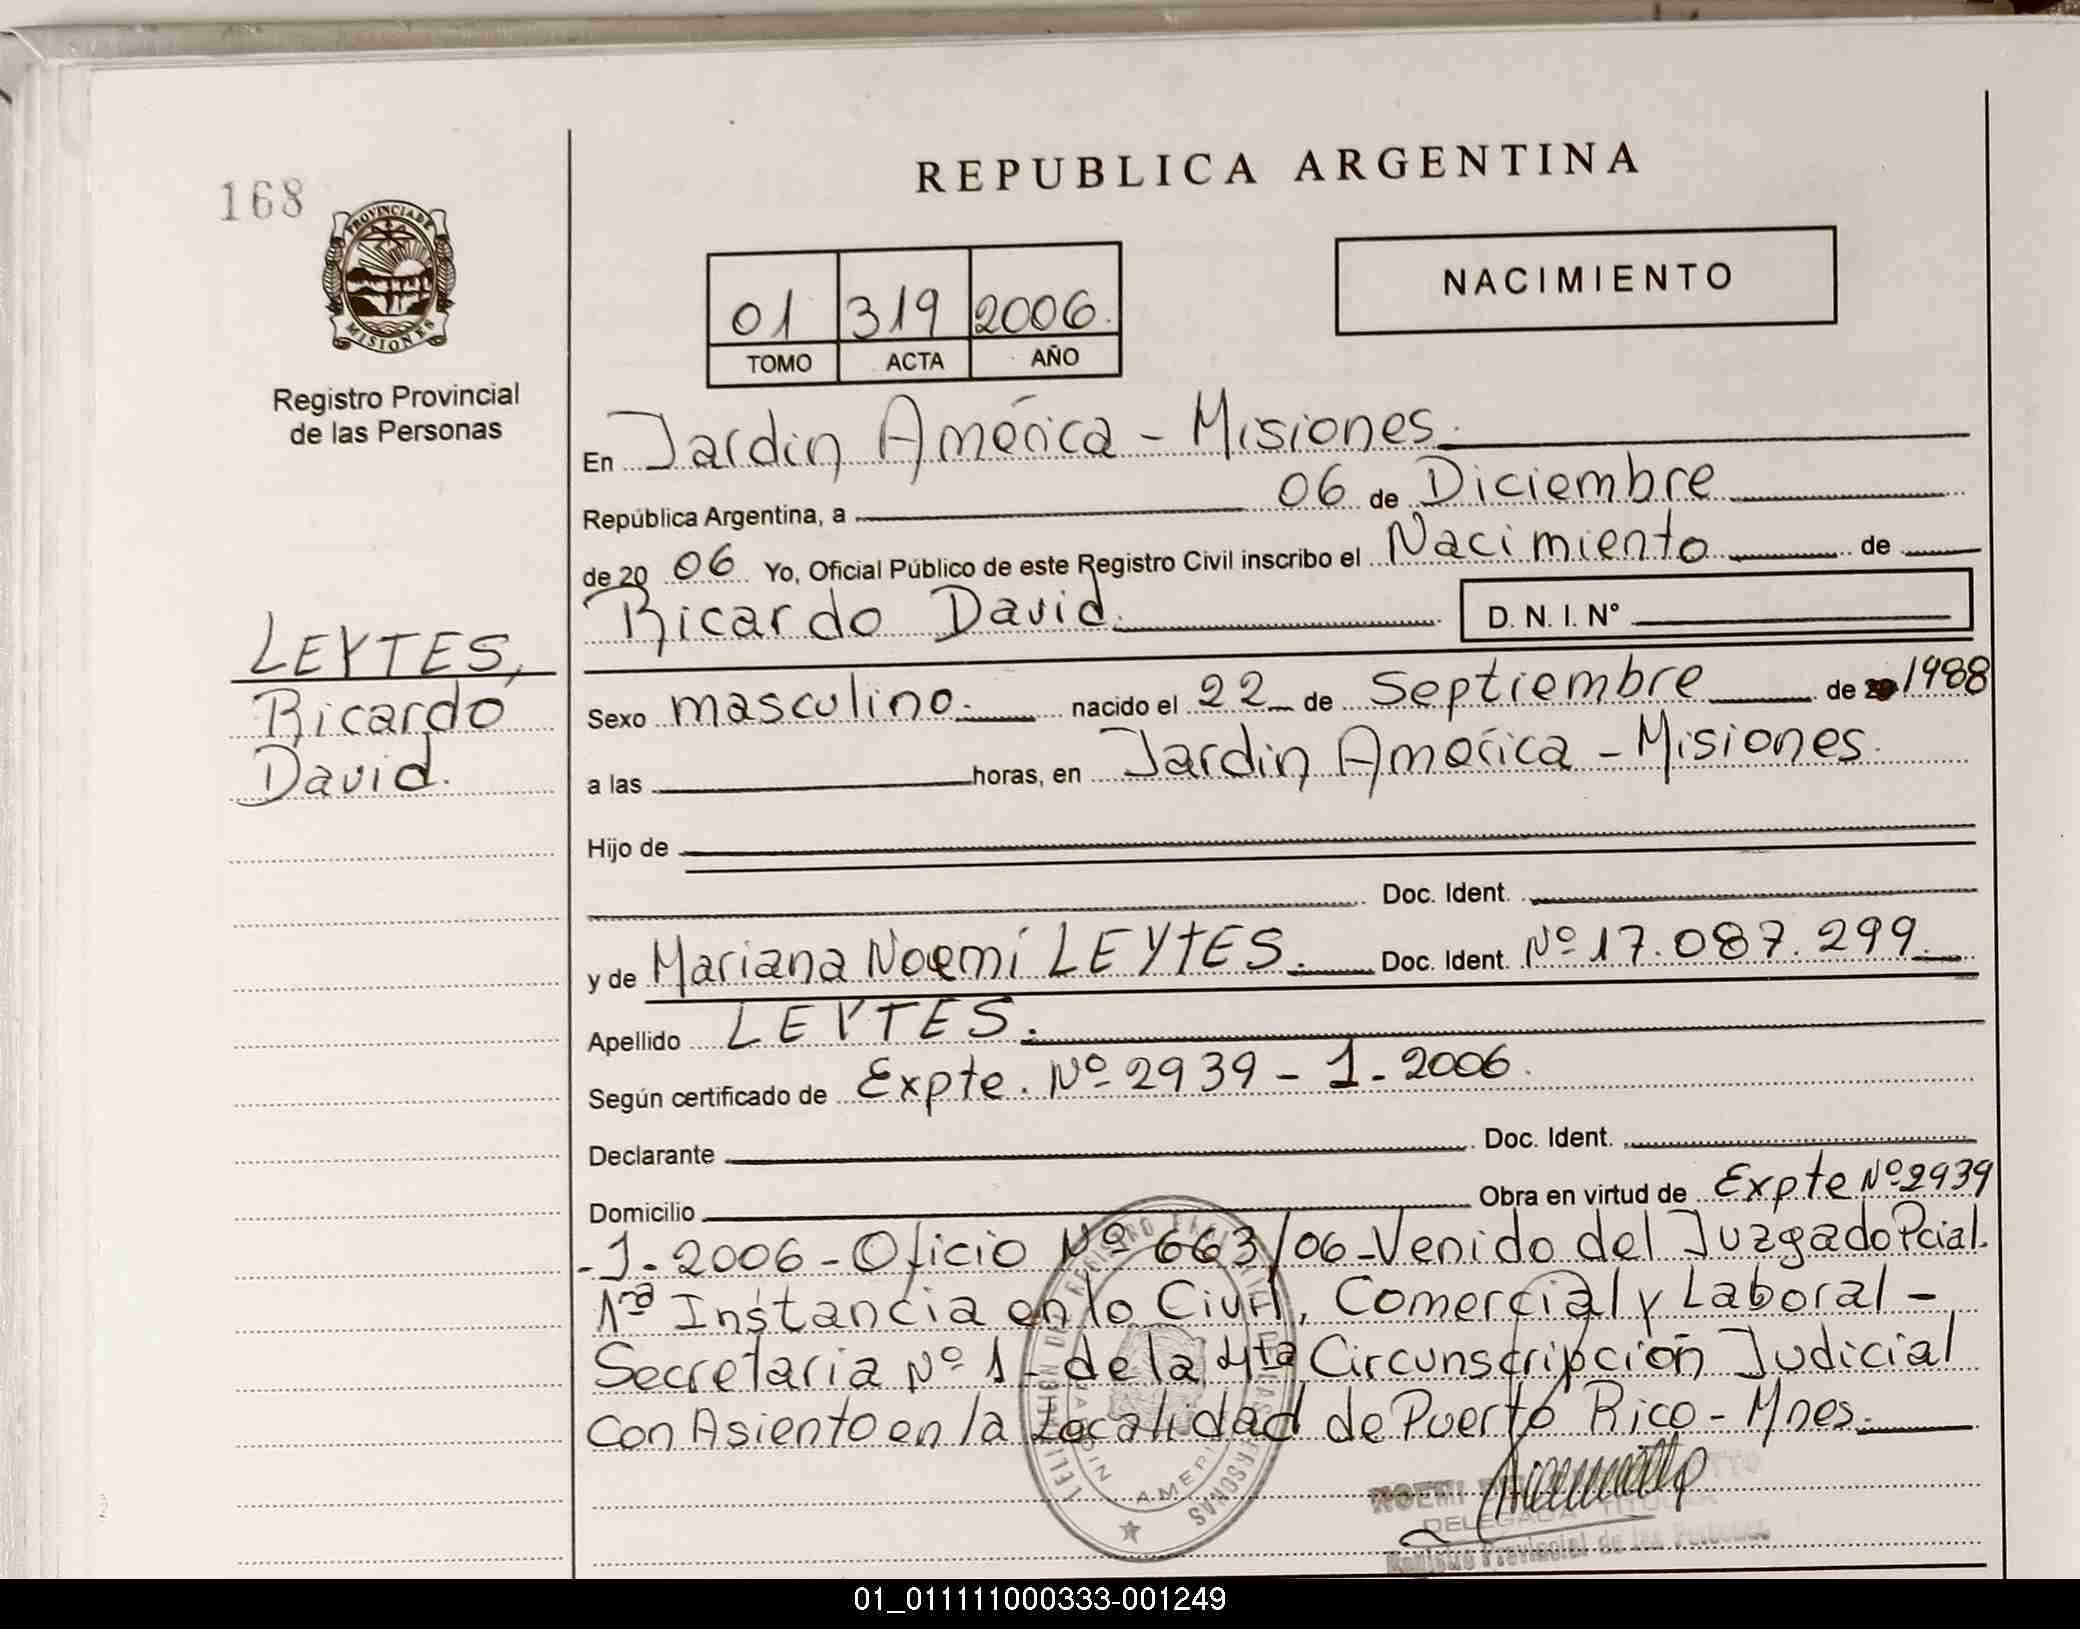 REPUBLICA ARGENTINA
168
PROVINCIA DE
MISIONES
Registro Provincial
de las Personas
01 319 2006.
TOMO ACTA AÑO
NACIMIENTO
En Jardin América - Misiones.
República Argentina, a 06 de Diciembre
de 2006 Yo, Oficial Público de este Registro Civil inscribo el Nacimiento de
Ricardo David. D. N. I. N°
LEYTES,
Ricardo
David.
Sexo masculino. nacido el 22 de Septiembre de 1988
a las horas, en Jardin América - Misiones.
Hijo de
Doc. Ident.
y de Mariana Noemí LEYTES. Doc. Ident. Nº 17.087.299.
Apellido LEYTES.
Según certificado de Expte. Nº 2939 - 1 - 2006.
Declarante Doc. Ident.
Domicilio Obra en virtud de Expte Nº 2939
- 1 - 2006 - Oficio Nº 663/06 - Venido del Juzgado Pcial.
1ra Instancia en lo Civil, Comercial y Laboral -
Secretaria Nº 1 - de la 4ta Circunscripción Judicial
con Asiento en la Localidad de Puerto Rico - Mnes.
NOEMI
DELEGADA TITULAR
Registro Provincial de las Personas
01_011111000333-001249